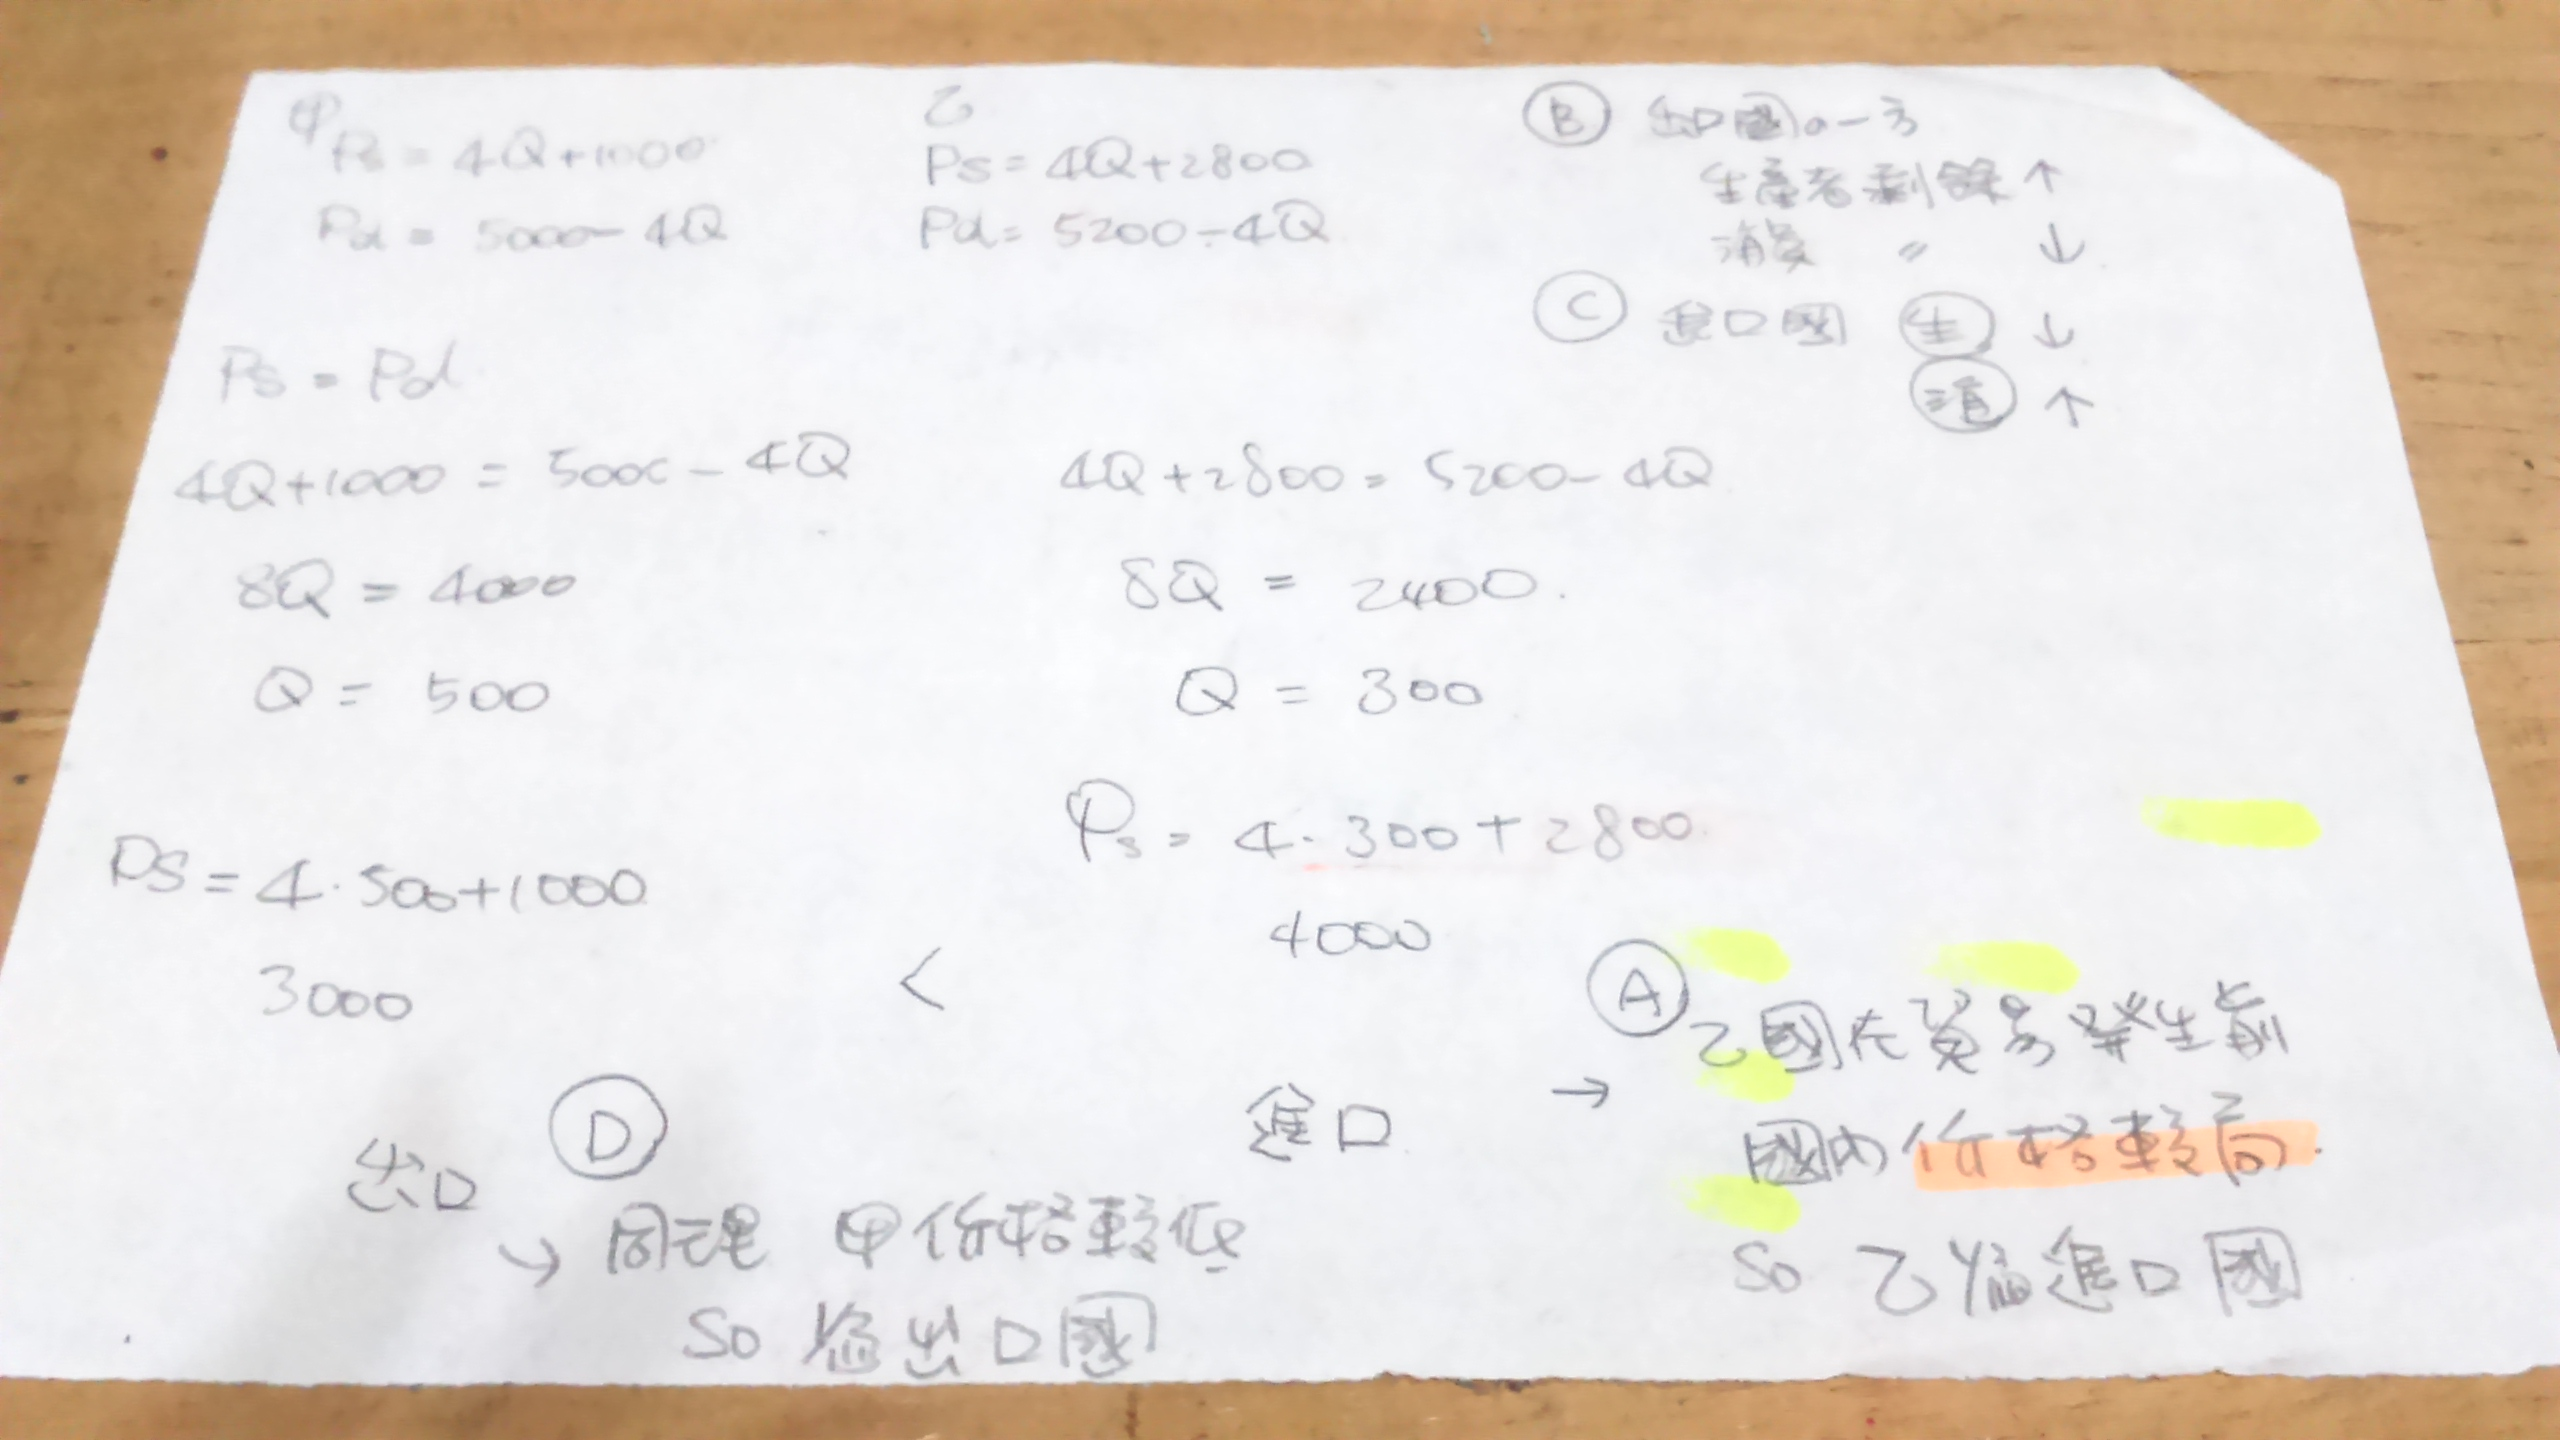 甲
Ps = 4Q+1000
Pd = 5000-4Q
Ps = Pd
4Q+1000 = 5000-4Q
8Q = 4000
Q = 500
Ps = 4·500+1000
3000
出口
Ⓓ
→ 同理 甲价格較低
So 為出口國
<
乙
Ps = 4Q+2800
Pd = 5200-4Q
4Q+2800 = 5200-4Q
8Q = 2400.
Q = 300
Ps = 4·300+2800
4000
進口
Ⓑ 出口國a一方
生產者剩餘↑
消費 〃 ↓
Ⓒ 進口國 ㊤生 ↓
消 ↑
→ Ⓐ 乙國在貿易發生前
國內价格較高.
So 乙為進口國